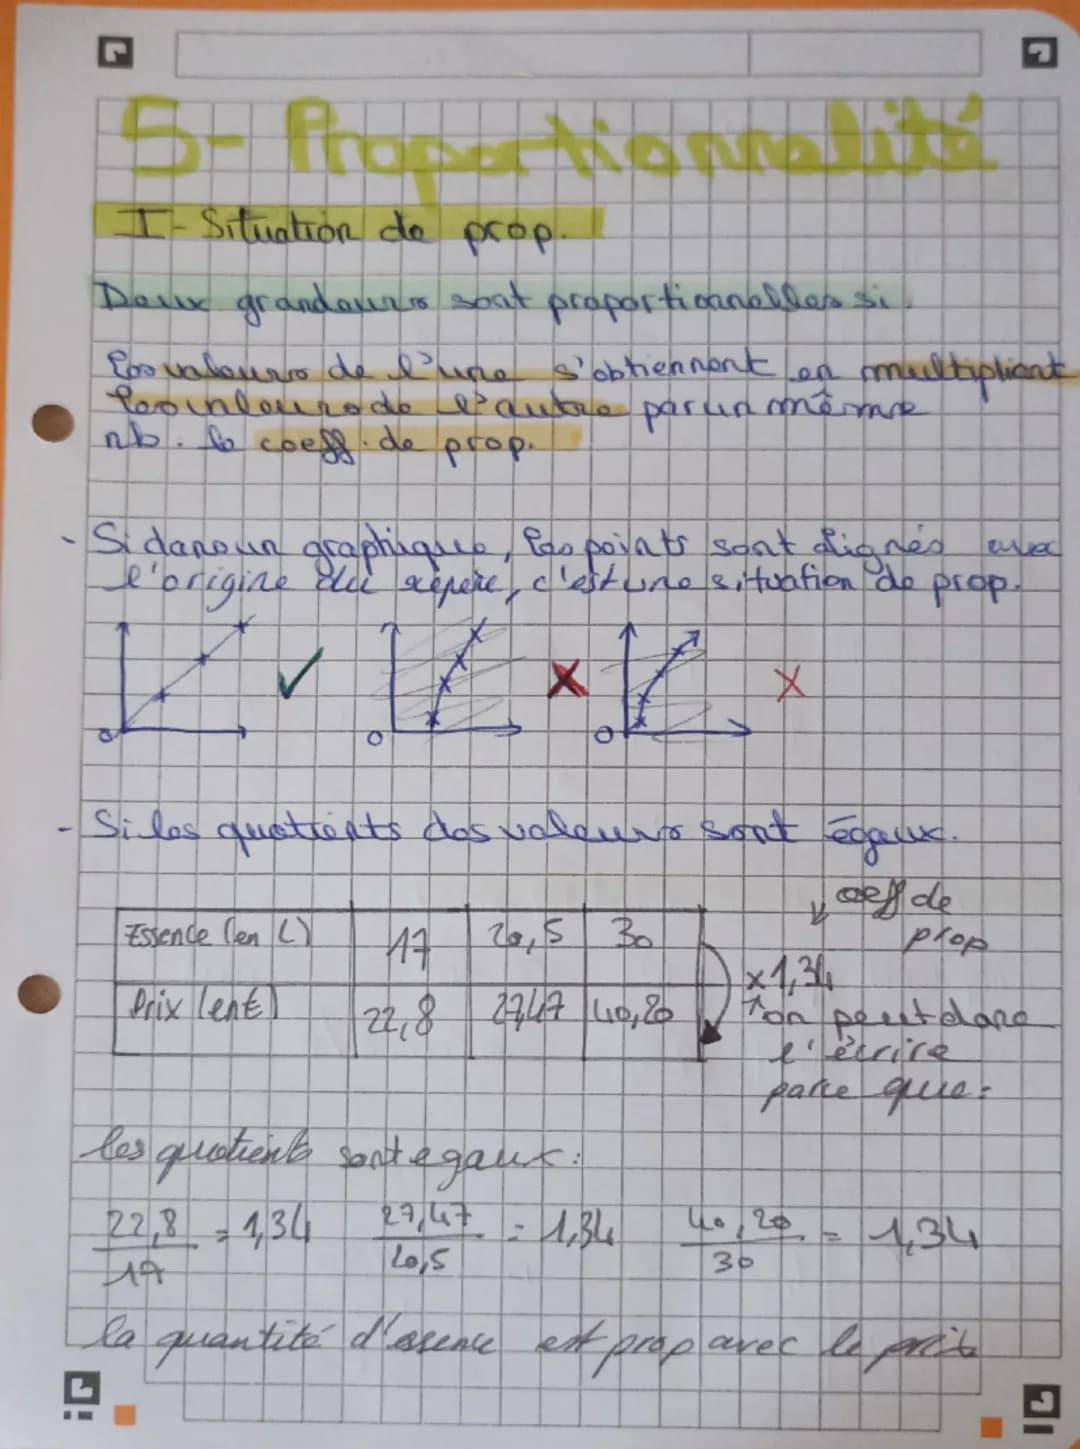 5- Proportionnalité
I- Situation de prop.
Deux grandeurs sont proportionnelles si.
Les valeurs de l'une s'obtiennent en multipliant
les valeurs de l'autre par un même
nb. le coeff. de prop.
- Si dans un graphique, les points sont alignés avec
l'origine du repère, c'est une situation de prop.
O
O
O
- Si les quotients des valeurs sont égaux.
coeff de
prop
Essence (en L) 17 20,5 30
x1,34
Prix (en €) 22,8 27,47 40,20
↑on peut donc
l'écrire
parce que:
les quotients sont egaux:
22,8/17 = 1,34 27,47/20,5 = 1,34 40,20/30 = 1,34
la quantité d'essence est prop avec le prix